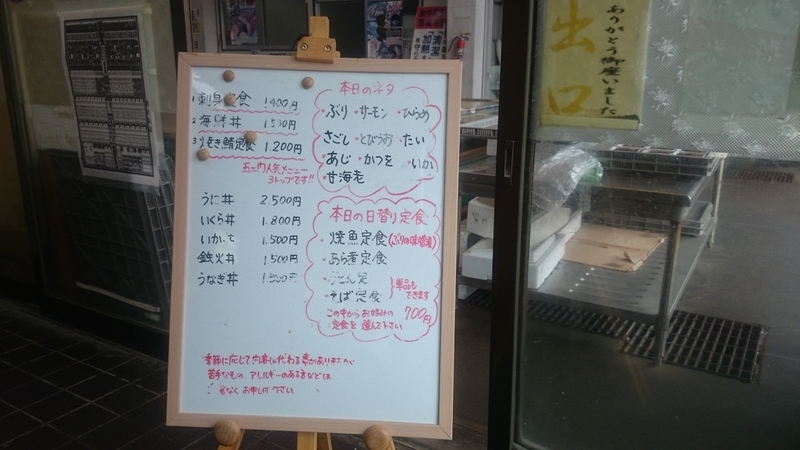 1 刺身定食 1,400円
2 海鮮丼 1,500円
3 焼き鯖定食 1,200円
人気メニュー
3トップです!!
うに丼 2,500円
いくら丼 1,800円
1,500円
鉄火丼 1,500円
うなぎ丼 1,500円
季節に応じて内容が代わる事があります
苦手なもの、アレルギーのある方などは
なくお申し付け下さい
本日のネタ
・ぶり ・サーモン ・ひらめ
さごし ・とびうお ・たい
あじ ・かつを ・いか
甘海老
本日の日替り定食
・焼魚定食(ぶりの味噌漬)
・あら煮定食
・うどん定
・そば定食
単品も
できます
この中からお好みの 700円
定食を選んで下さい
出口
ありがとう御座いました